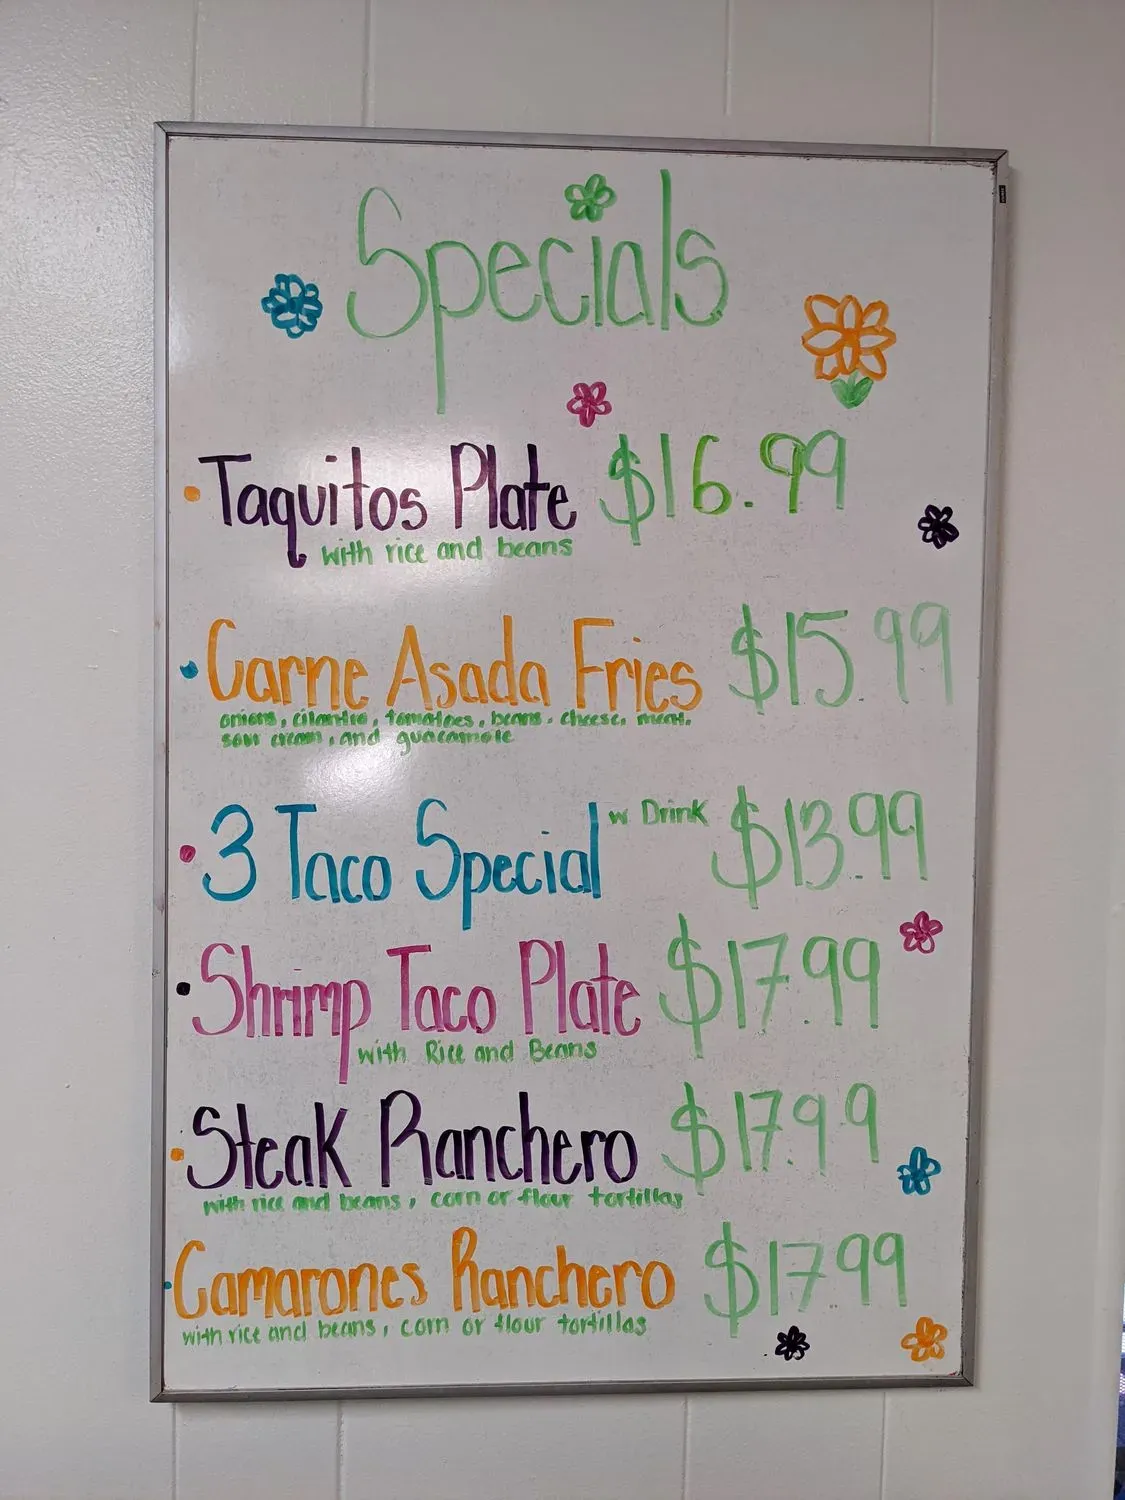 Specials
• Taquitos Plate $16.99
with rice and beans
• Carne Asada Fries $15.99
onions, cilantro, tomatoes, beans, cheese, meat,
sour cream, and guacamole
• 3 Taco Special w Drink $13.99
• Shrimp Taco Plate $17.99
with Rice and Beans
• Steak Ranchero $17.99
with rice and beans, corn or flour tortillas
• Camarones Ranchero $17.99
with rice and beans, corn or flour tortillas